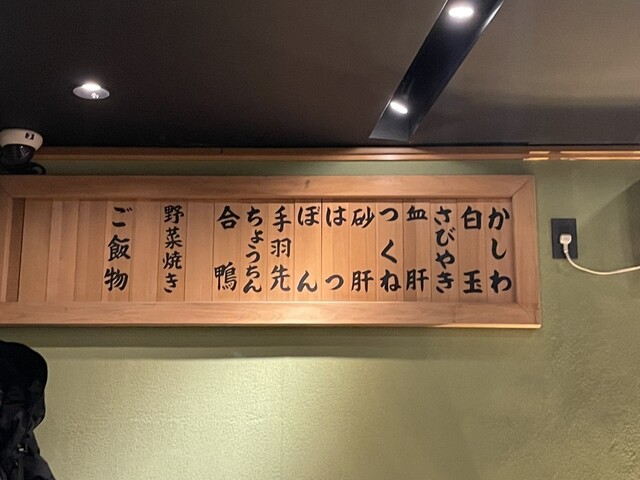 かしわ
白玉
さびやき
血肝
つくね
砂肝
はつ
ぼん
手羽先
ちょうちん
合鴨
野菜焼き
ご飯物